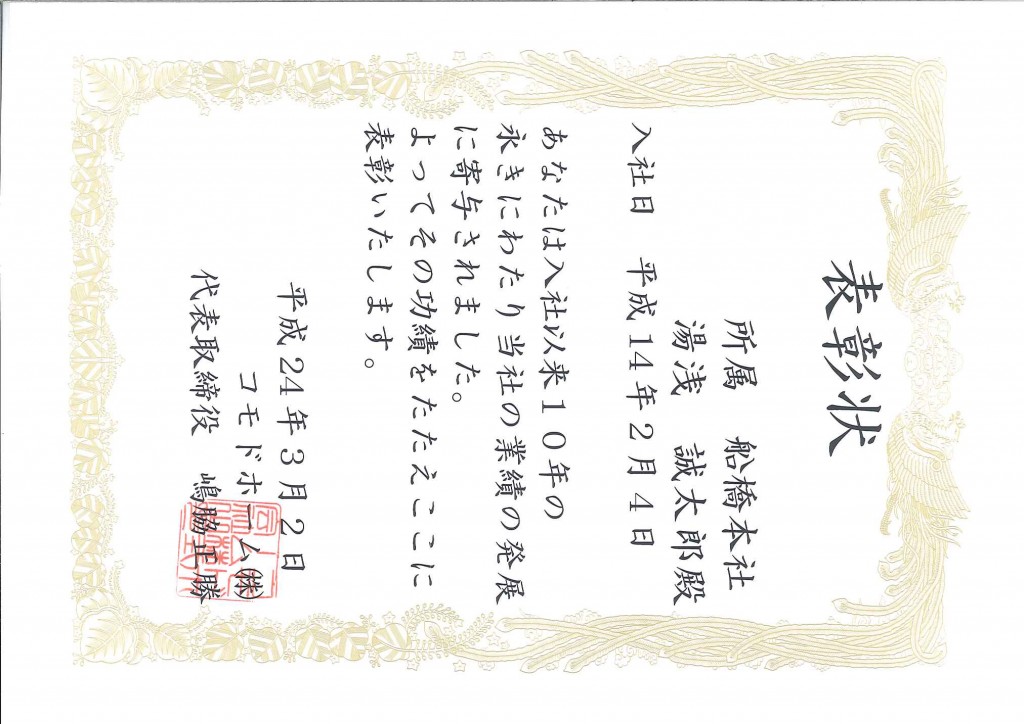 表彰状
所属　船橋本社
湯浅　誠太郎殿
入社日　平成14年2月4日
あなたは入社以来10年の
永きにわたり当社の業績の発展
に寄与されました。
よってその功績をたたえここに
表彰いたします。
平成24年3月2日
コモドホーム㈱
代表取締役　嶋脇正勝